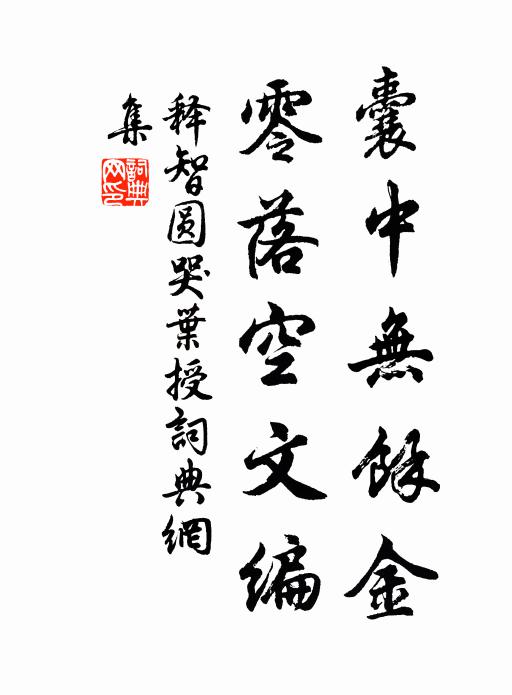 囊中無餘金
零落空文编
释智圆哭葉授詞典網
集
詞典网印